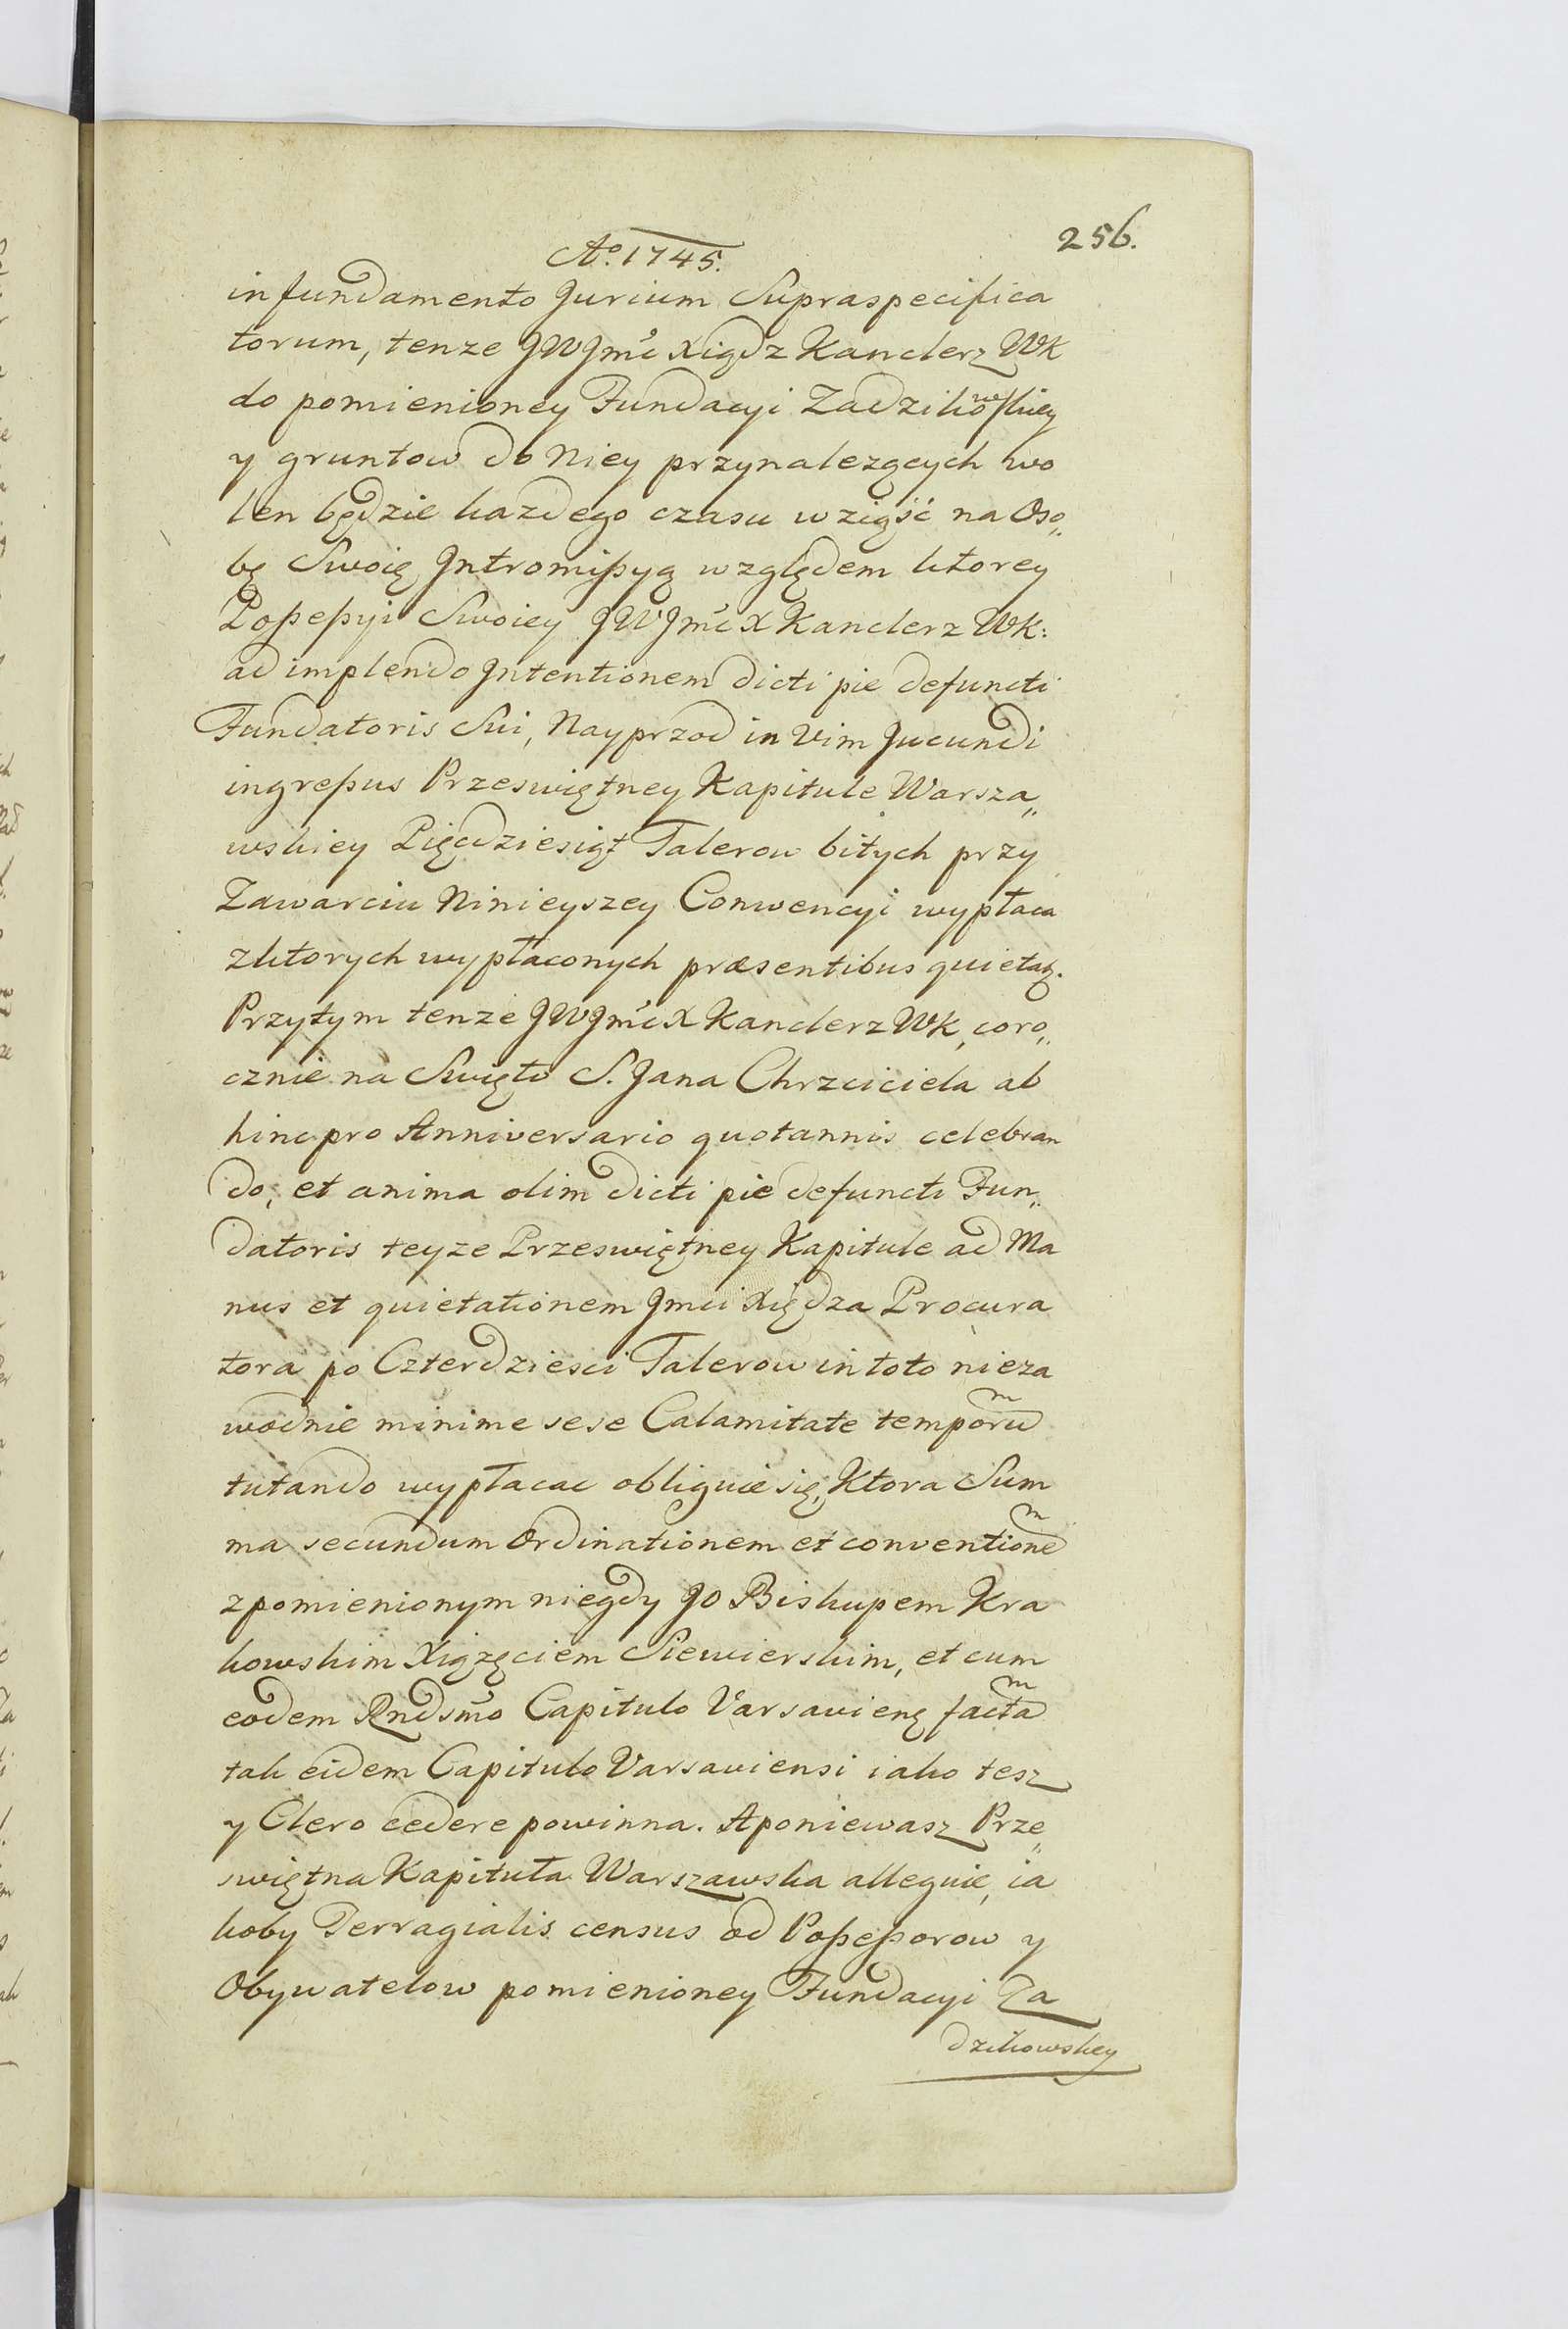 256.
Ao. 1745.
in fundamento Jurium Supraspecifica
torum, tenze JWJmć Xiądz Kanclerz WK
do pomienioney Fundacyi Zadzikowskiey
y gruntow do Niey przynalezących wo
len będzie kazdego czasu wziąść na Oso„
bę Swoię Jntromißyą względem ktorey
Poßeßyi Swoiey JWJmć X Kanclerz WK:
ad implendo Jntentionem dicti pie defuncti
Fundatoris Sui, Nayprzod in Vim Jucundi
ingreßus Przeswiętney Kapitule Warsza„
wskiey Pięcdziesiąt Talerow bitych przy
Zawarciu Ninieyszey Conwencyi wypłaca
z ktorych wypłaconych præsentibus quietat.
Przytym tenze JWJmć X Kanclerz WK, coro„
cznie na Swięto S. Jana Chrzciciela ab
hinc pro Anniversario quotannis celebran
do, et anima olim dicti pie defuncti Fun„
datoris teyze Przeswiętney Kapitule ad Ma
nus et quietationem Jmci Xiędza Procura
tora po Czterdziesci Talerow in toto nieza
wodnie minime sese Calamitate temporum
tutando wypłacac obliguie się, Ktora Sum
ma secundum Ordinationem et conventionem
z pomienionym niegdy JO Biskupem Kra
kowskim Xiązęciem Siewierskim, et cum
eodem Rndsmo Capitulo Varsavieng factam
tak eidem Capitulo Varsaviensi iako tesz
y Clero cedere powinna. A poniewasz Prze„
swiętna Kapituła Warszawska alleguie, ia
koby Terragialis census od Poßeßorow y
Obywatelow pomienioney Fundacyi Za
dzikowskey